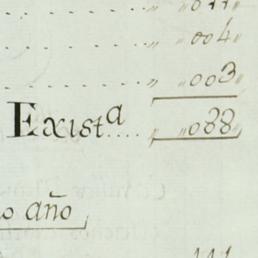 „ „ 004
„ „ 003
Exist.ª .... „ „ 088
año